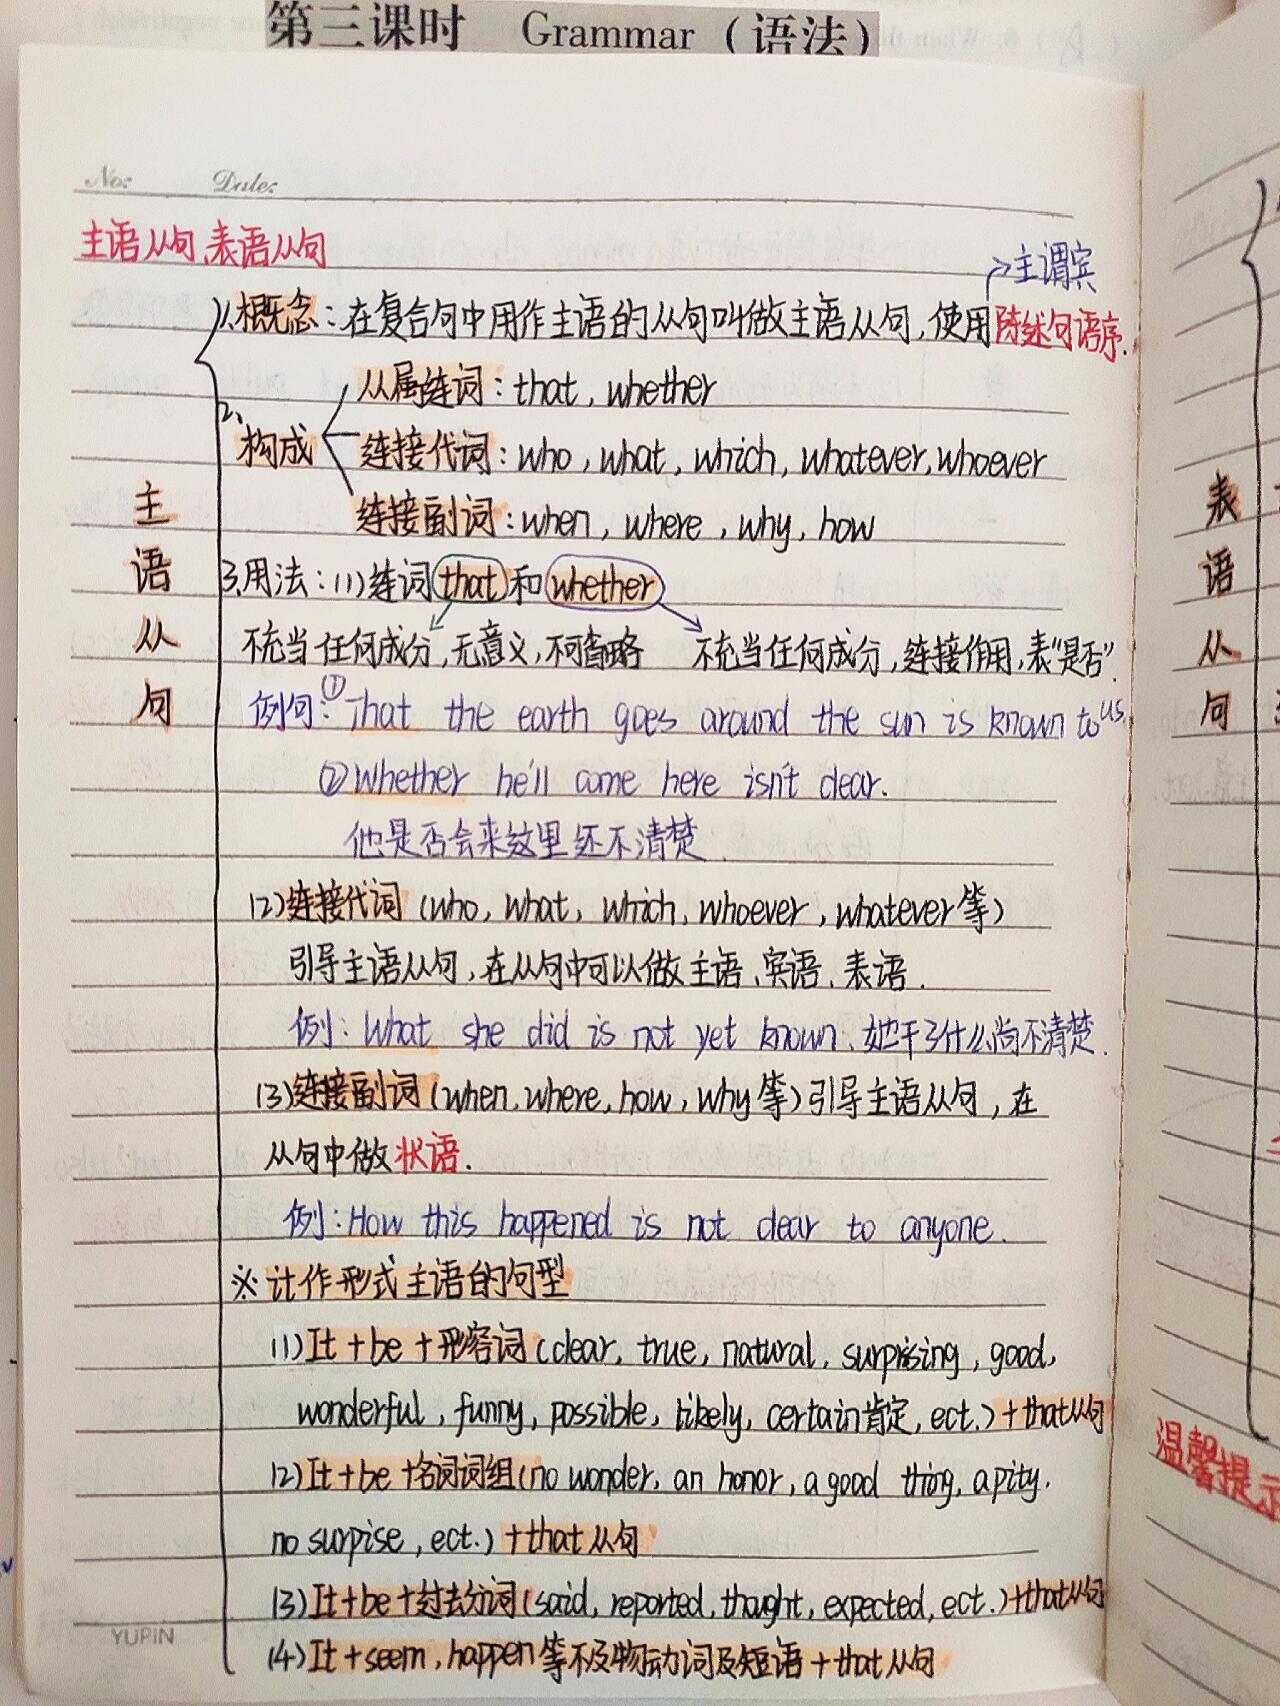 第三课时 Grammar (语法)
No: Date:
主语从句、表语从句
→主谓宾
1、概念：在复合句中用作主语的从句叫做主语从句，使用陈述句语序.
从属连词：that, whether
2、构成
连接代词：who, what, which, whatever, whoever
连接副词：when, where, why, how
主语从句
3、用法：(1)连词that和whether
不充当任何成分，无意义，不可省略 不充当任何成分，连接作用，表“是否”.
例句：① That the earth goes around the sun is known to us.
② Whether he'll come here isn't clear.
他是否会来这里还不清楚.
(2)连接代词 (who, what, which, whoever, whatever等)
引导主语从句，在从句中可以做主语、宾语、表语.
例：What she did is not yet known. 她干了什么尚不清楚.
(3)连接副词 (when, where, how, why等)引导主语从句，在
从句中做状语.
例：How this happened is not clear to anyone.
※ 计作形式主语的句型
(1) It + be + 形容词 (clear, true, natural, surprising, good,
wonderful, funny, possible, likely, certain肯定, ect.) + that从句
(2) It + be + 名词词组 (no wonder, an honor, a good thing, a pity,
no surpise, ect.) + that从句
(3) It + be + 过去分词 (said, reported, thought, expected, ect.) + that从句
(4) It + seem, happen等不及物动词及短语 + that从句
YUPIN
表语从句
温馨提示